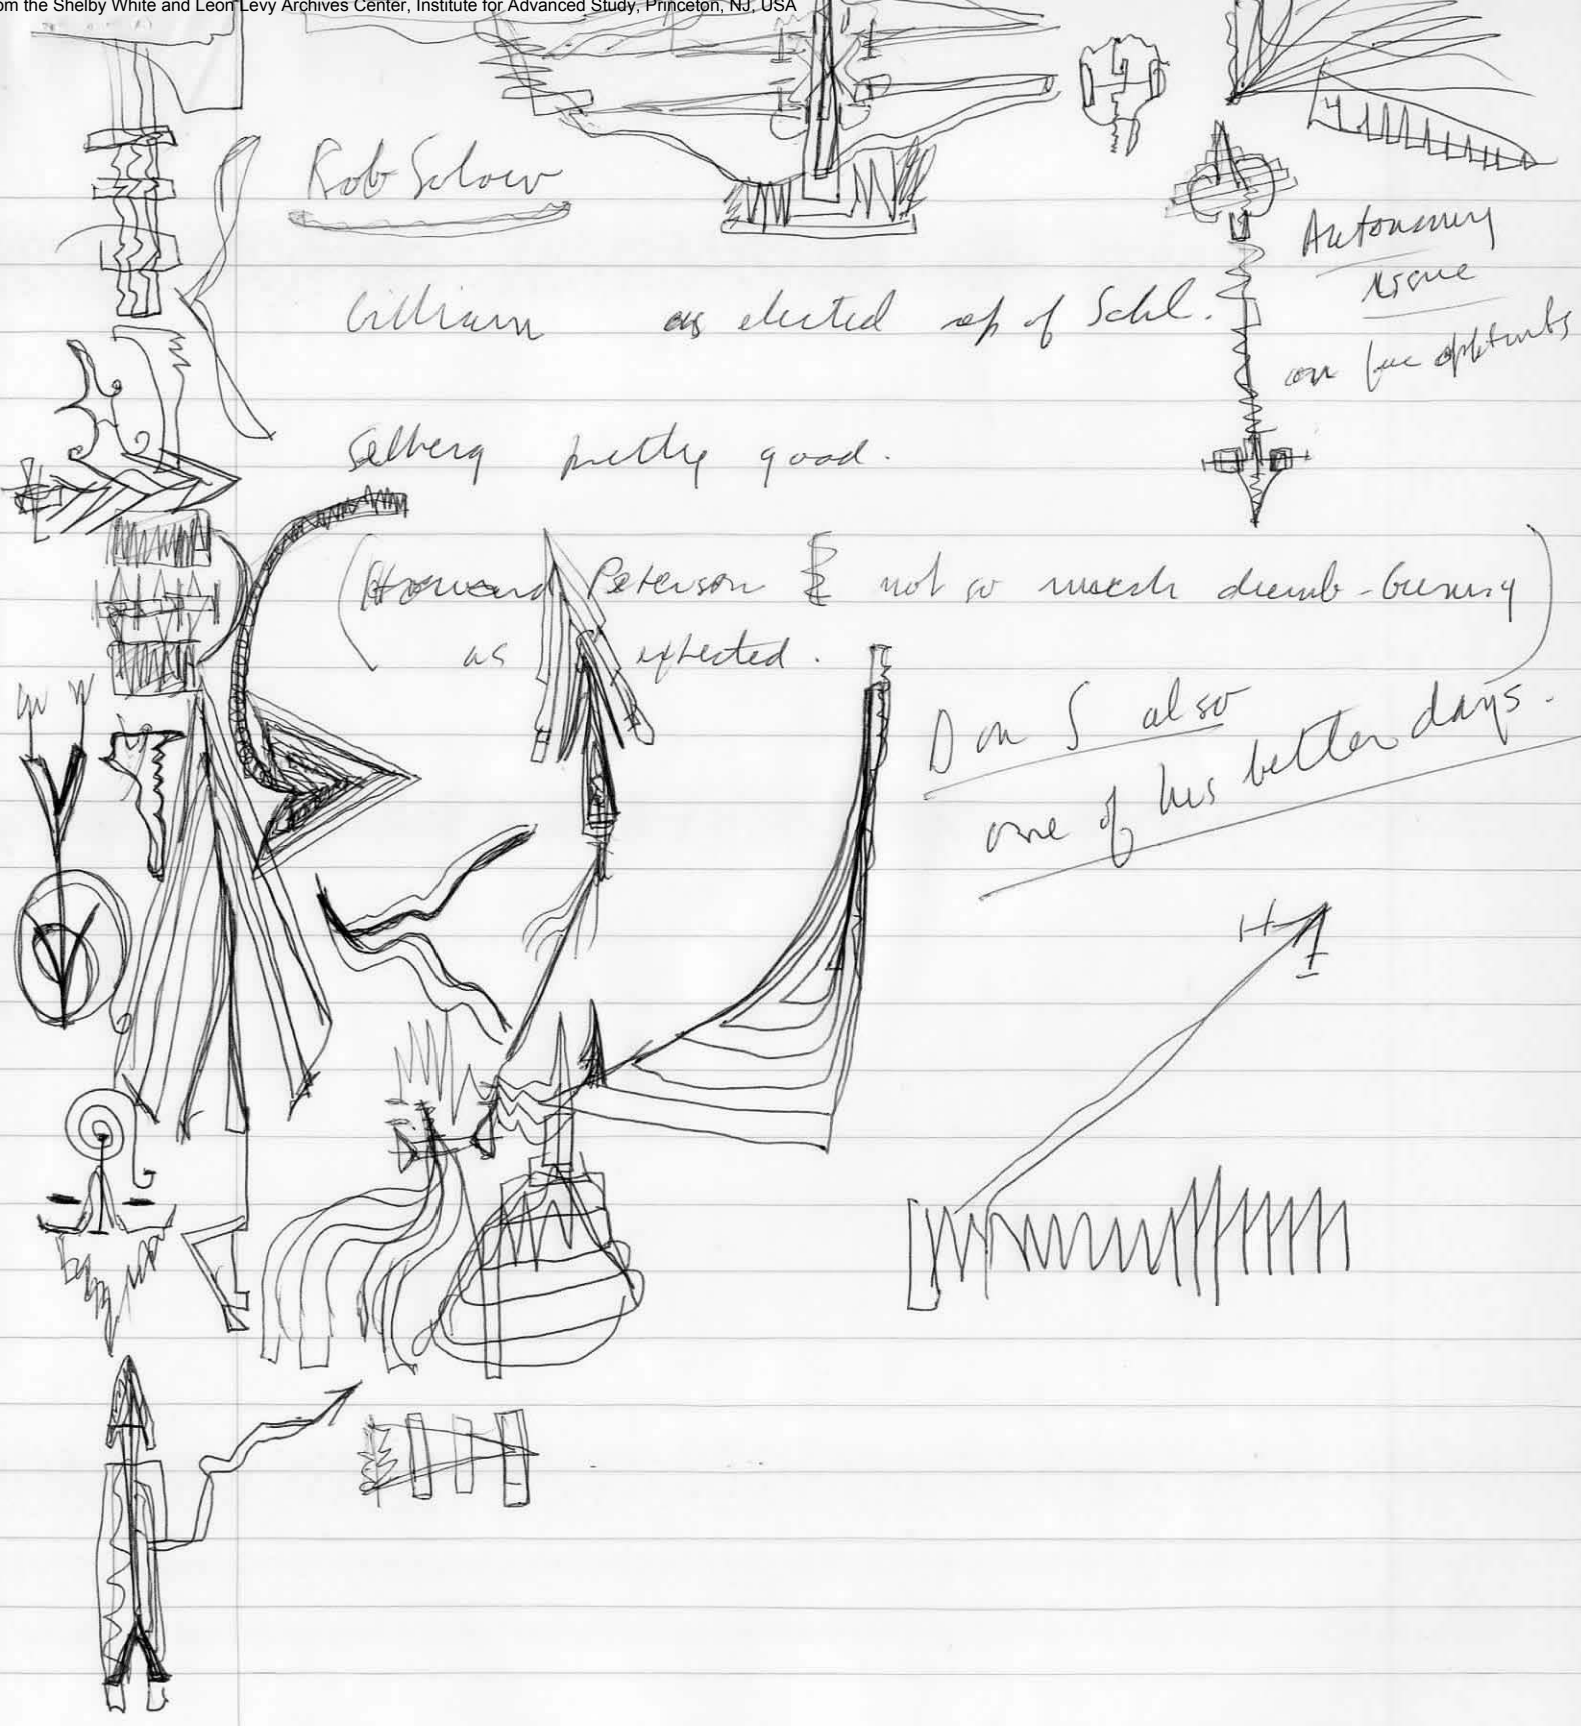 om the Shelby White and Leon Levy Archives Center, Institute for Advanced Study, Princeton, NJ, USA
Rob Solow
Autonomy
issue
Gilliam as elected rep of Schl.
on fac
Selberg pretty good.
(Howard Peterson not so much dumb-bunny
as expected.)
Don S also
one of his better days.